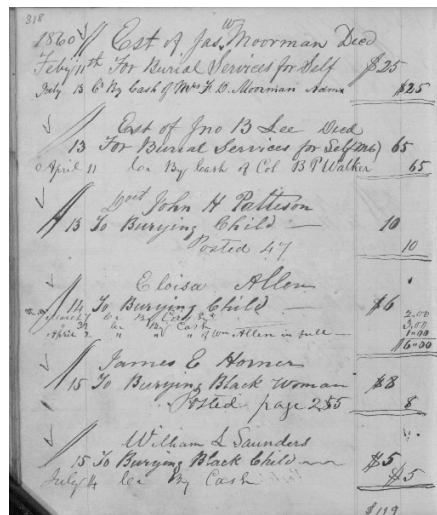 318
1860 Est of Jas W Moorman Died
Feby 11th For Burial Services for Self $25
July 13 Cr By Cash of Mrs F. D. Moorman Adms $25
Est of Jno B Lee Died
13 For Burial Services for Self 65
April 11 Cr By Cash of Col B P Walker 65
Doct John H Patteson
13 To Burying Child 10
Posted 47 10
Eloisa Allen
14 To Burying Child $6
March 7 Cr By 2.00
By Cash 3.00
April of Wm Allen in full 1.00
$6.00
James E Horner
15 To Burying Black Woman $8
Posted page 255 8
William L Saunders
15 To Burying Black Child $5
July 4 Cr By Cash $5
$119